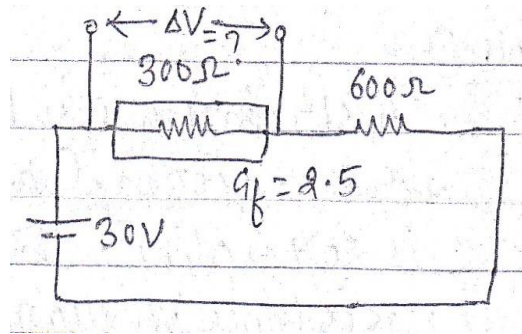 ΔV=?
300Ω
600Ω
Gf=2.5
30V